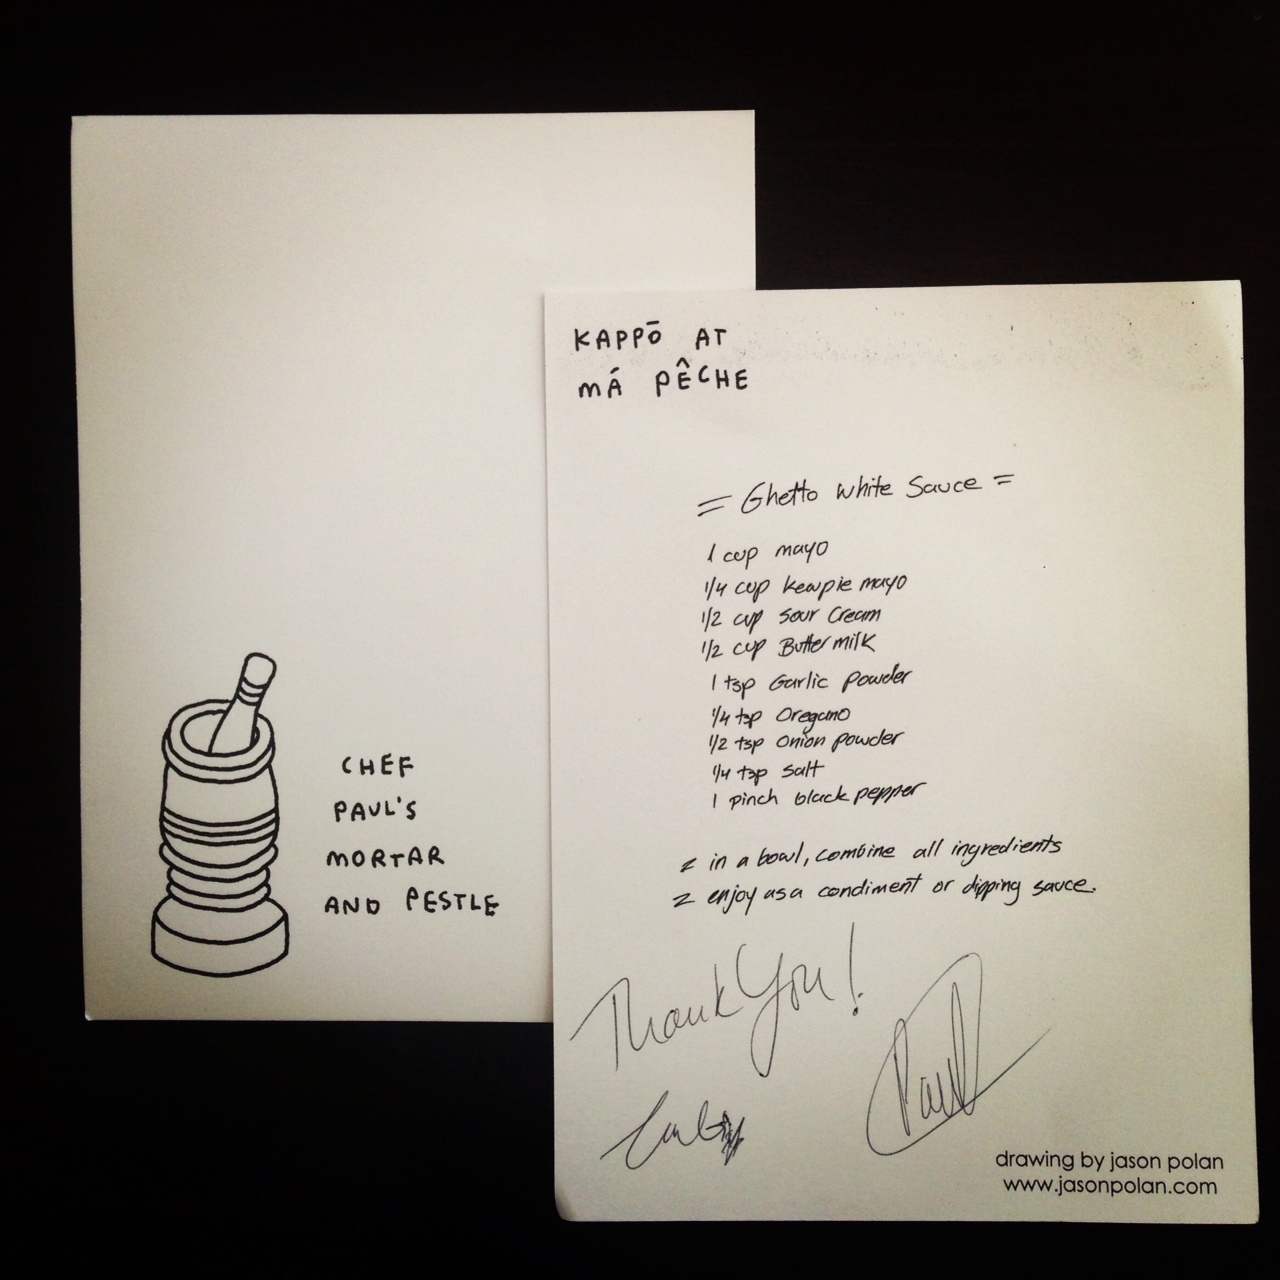 CHEF
PAUL'S
MORTAR
AND PESTLE
KAPPŌ AT
MÁ PÊCHE
= Ghetto White Sauce =
1 cup mayo
1/4 cup kewpie mayo
1/2 cup Sour Cream
1/2 cup Buttermilk
1 tsp Garlic Powder
1/4 tsp Oregano
1/2 tsp Onion Powder
1/4 tsp Salt
1 pinch black pepper
in a bowl, combine all ingredients
enjoy as a condiment or dipping sauce.
Thank You!
Paul
drawing by jason polan
www.jasonpolan.com